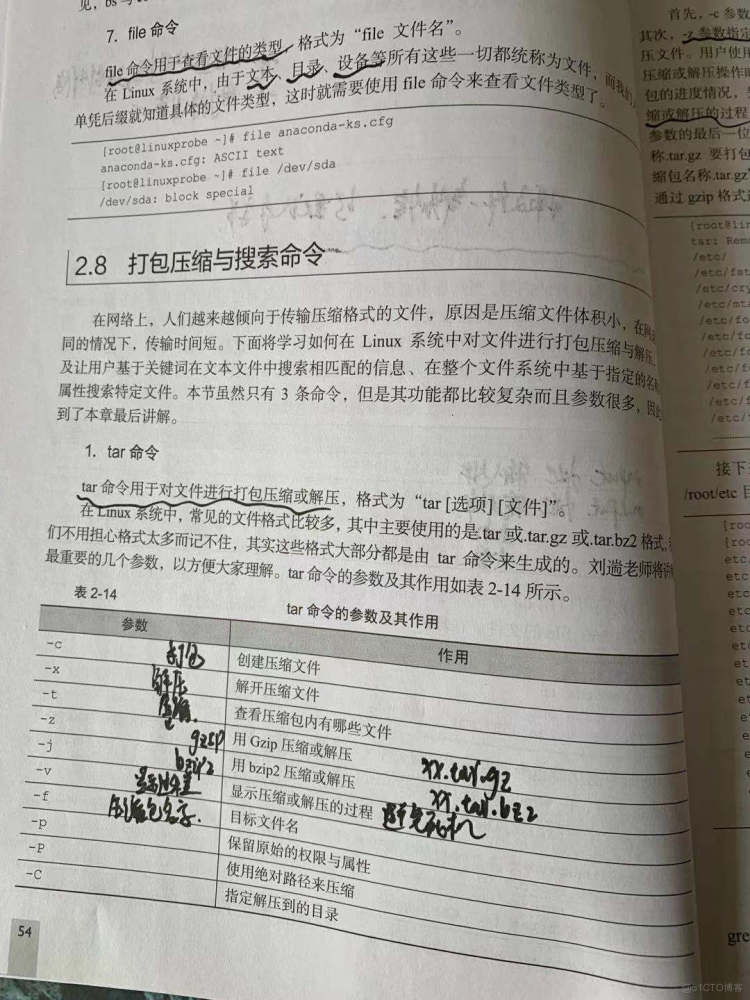 见，bs与
7. file 命令
file 命令用于查看文件的类型，格式为“file 文件名”。
在 Linux 系统中，由于文本、目录、设备等所有这些一切都统称为文件，而我们
单凭后缀就知道具体的文件类型，这时就需要使用 file 命令来查看文件类型了。
[root@linuxprobe ~]# file anaconda-ks.cfg
anaconda-ks.cfg: ASCII text
[root@linuxprobe ~]# file /dev/sda
/dev/sda: block special
2.8 打包压缩与搜索命令
在网络上，人们越来越倾向于传输压缩格式的文件，原因是压缩文件体积小，在网速
同的情况下，传输时间短。下面将学习如何在 Linux 系统中对文件进行打包压缩与解压，
及让用户基于关键词在文本文件中搜索相匹配的信息、在整个文件系统中基于指定的名称
属性搜索特定文件。本节虽然只有 3 条命令，但是其功能都比较复杂而且参数很多，因此
到了本章最后讲解。
1. tar 命令
tar 命令用于对文件进行打包压缩或解压，格式为“tar [选项] [文件]”。
在 Linux 系统中，常见的文件格式比较多，其中主要使用的是.tar 或.tar.gz 或.tar.bz2 格式，
们不用担心格式太多而记不住，其实这些格式大部分都是由 tar 命令来生成的。刘遄老师将
最重要的几个参数，以方便大家理解。tar 命令的参数及其作用如表 2-14 所示。
表 2-14 tar 命令的参数及其作用
参数 作用
-c 打包 创建压缩文件
-x 解压 解开压缩文件
-t 查看压缩包内有哪些文件
-z gzip 用 Gzip 压缩或解压 xx.tar.gz
-j bzip2 用 bzip2 压缩或解压 xx.tar.bz2
-v 显示过程 显示压缩或解压的过程 避免死机
-f 压缩包名字. 目标文件名
-p 保留原始的权限与属性
-P 使用绝对路径来压缩
-C 指定解压到的目录
54
首先，-c 参数
其次，-z 参数指定
压文件。用户使用
压缩或解压操作时
包的进度情况，
缩或解压的过程
参数的最后一位
称.tar.gz 要打包
缩包名称.tar.gz”
通过 gzip 格式
[root@lin
tar: Rem
/etc/
/etc/fst
/etc/cry
/etc/mta
/etc/fo
/etc/fc
/etc/fo
/etc/f
/etc/f
/etc/f
/etc/
接下
/root/etc 目
[root
[roo
etc
etc
etc
etc
etc
et
et
et
et
gre
@51CTO博客